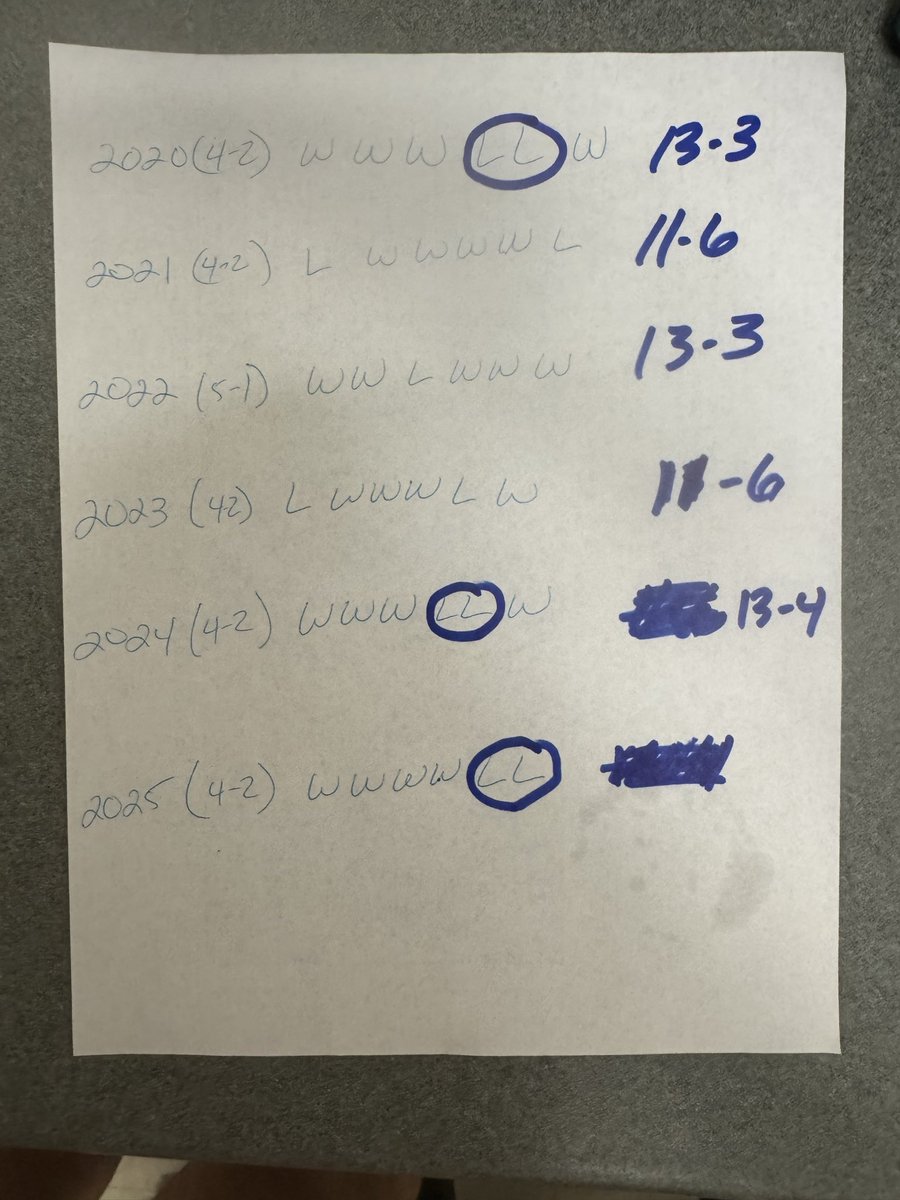 2020 (4-2) W W W L L W 13-3
2021 (4-2) L W W W W L 11-6
2022 (5-1) W W L W W W 13-3
2023 (42) L W W W L W 11-6
2024 (4-2) W W W L L W 13-4
2025 (4-2) W W W W L L